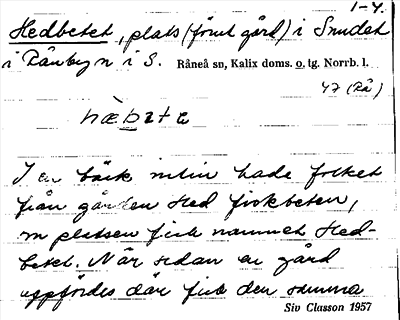 1-4.
Hedbetet, plats (förut gård) i Smedet
i Rånbyn i S. Råneå sn, Kalix doms. o. tg. Norrb. l.
47 (Rå)
I en bäck intill hade folket
från gården Hed fiskbeten,
m platsen fick namnet Hed-
betet. När sedan en gård
uppfördes där fick den samma
Siv Classon 1957